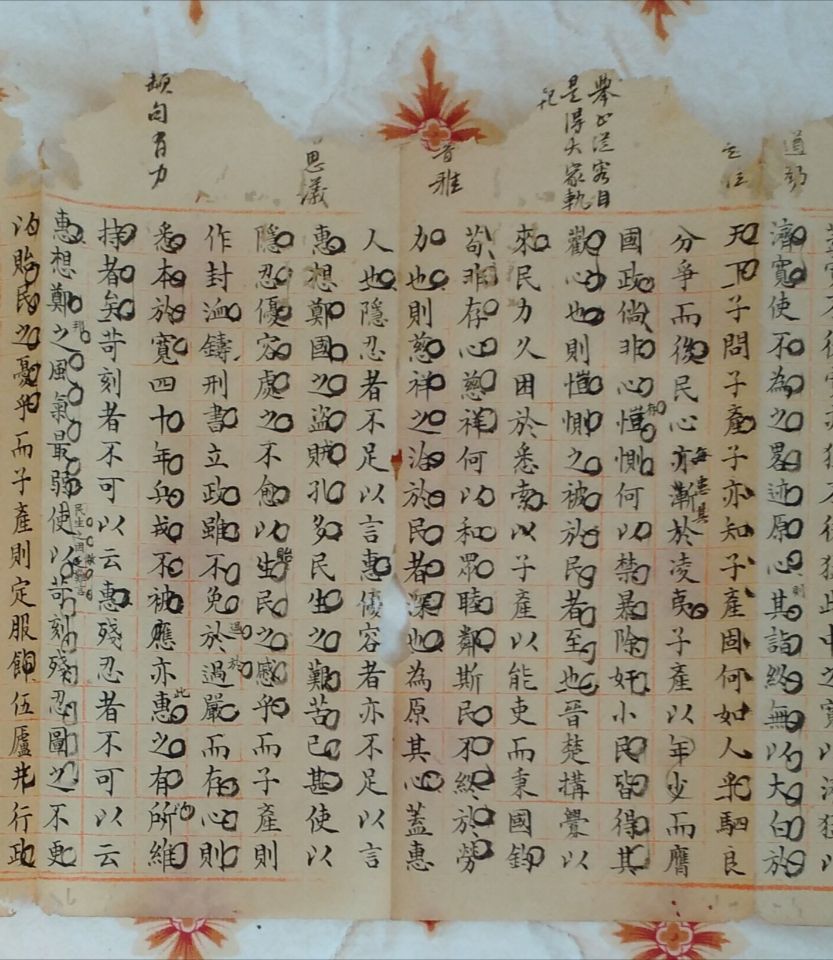 道郁
之任
舉止從容自
是得大家軌
音雅
思議
頓句有力
濟寬使不為之畧迹原心其詣終無以大白於
則
天下子問子產子亦知子產固何如人乎駟良
分爭而後民心亦漸於凌夷子產以年少而膺
國政倘非心惻何以禁暴除奸小民皆得其
歡心也則愷惻之被於民者至也晉楚搆釁以
來民力久困於悉索以子產以能吏而秉國鈞
苟非存心慈祥何以和眾睦鄰斯民不終於勞
力也則慈祥之治於民者深也為原其心蓋惠
人也隱忍者不足以言惠優容者亦不足以言
惠想鄭國之盜賊孔多民生之艱苦已甚使以
隱忍優容處之不愈以生民之慼乎而子產則
貽
作封洫鑄刑書立政雖不免於過嚴而存心則
悉本於寬四十年兵戎不被應亦惠之有所維
此
持者矣苛刻者不可以云惠殘忍者不可以云
惠想鄭之風氣最弱使以苛刻殘忍圖之不更
以貽民之憂乎而子產則定服飾伍廬井行政